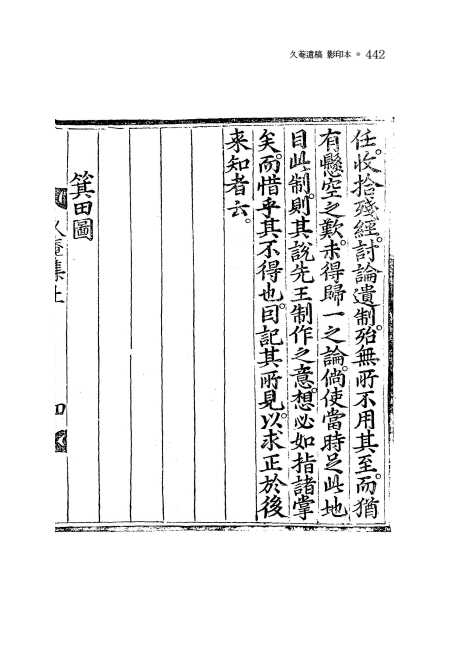 久菴遺稿 影印本 ● 442
任。收拾殘經。討論遺制。殆無所不用其至。而猶
有懸空之歎。未得歸一之論。倘使當時足此地
目此制。則其說先王制作之意。想必如指諸掌
矣。而惜乎其不得也。因記其所見。以求正於後
来知者云。
箕田圖
久菴集上
四